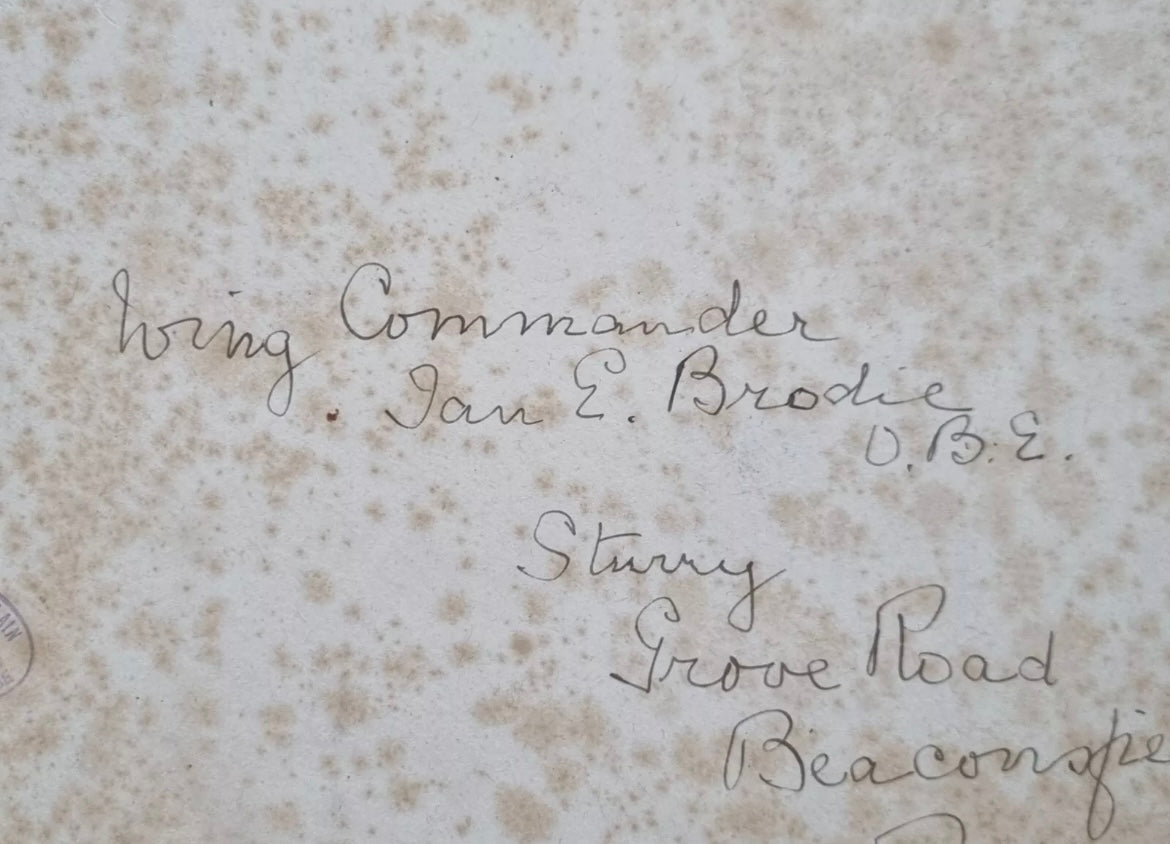 Wing Commander
Ian E. Brodie
O.B.E.
Sturry
Grove Road
Beaconsfie